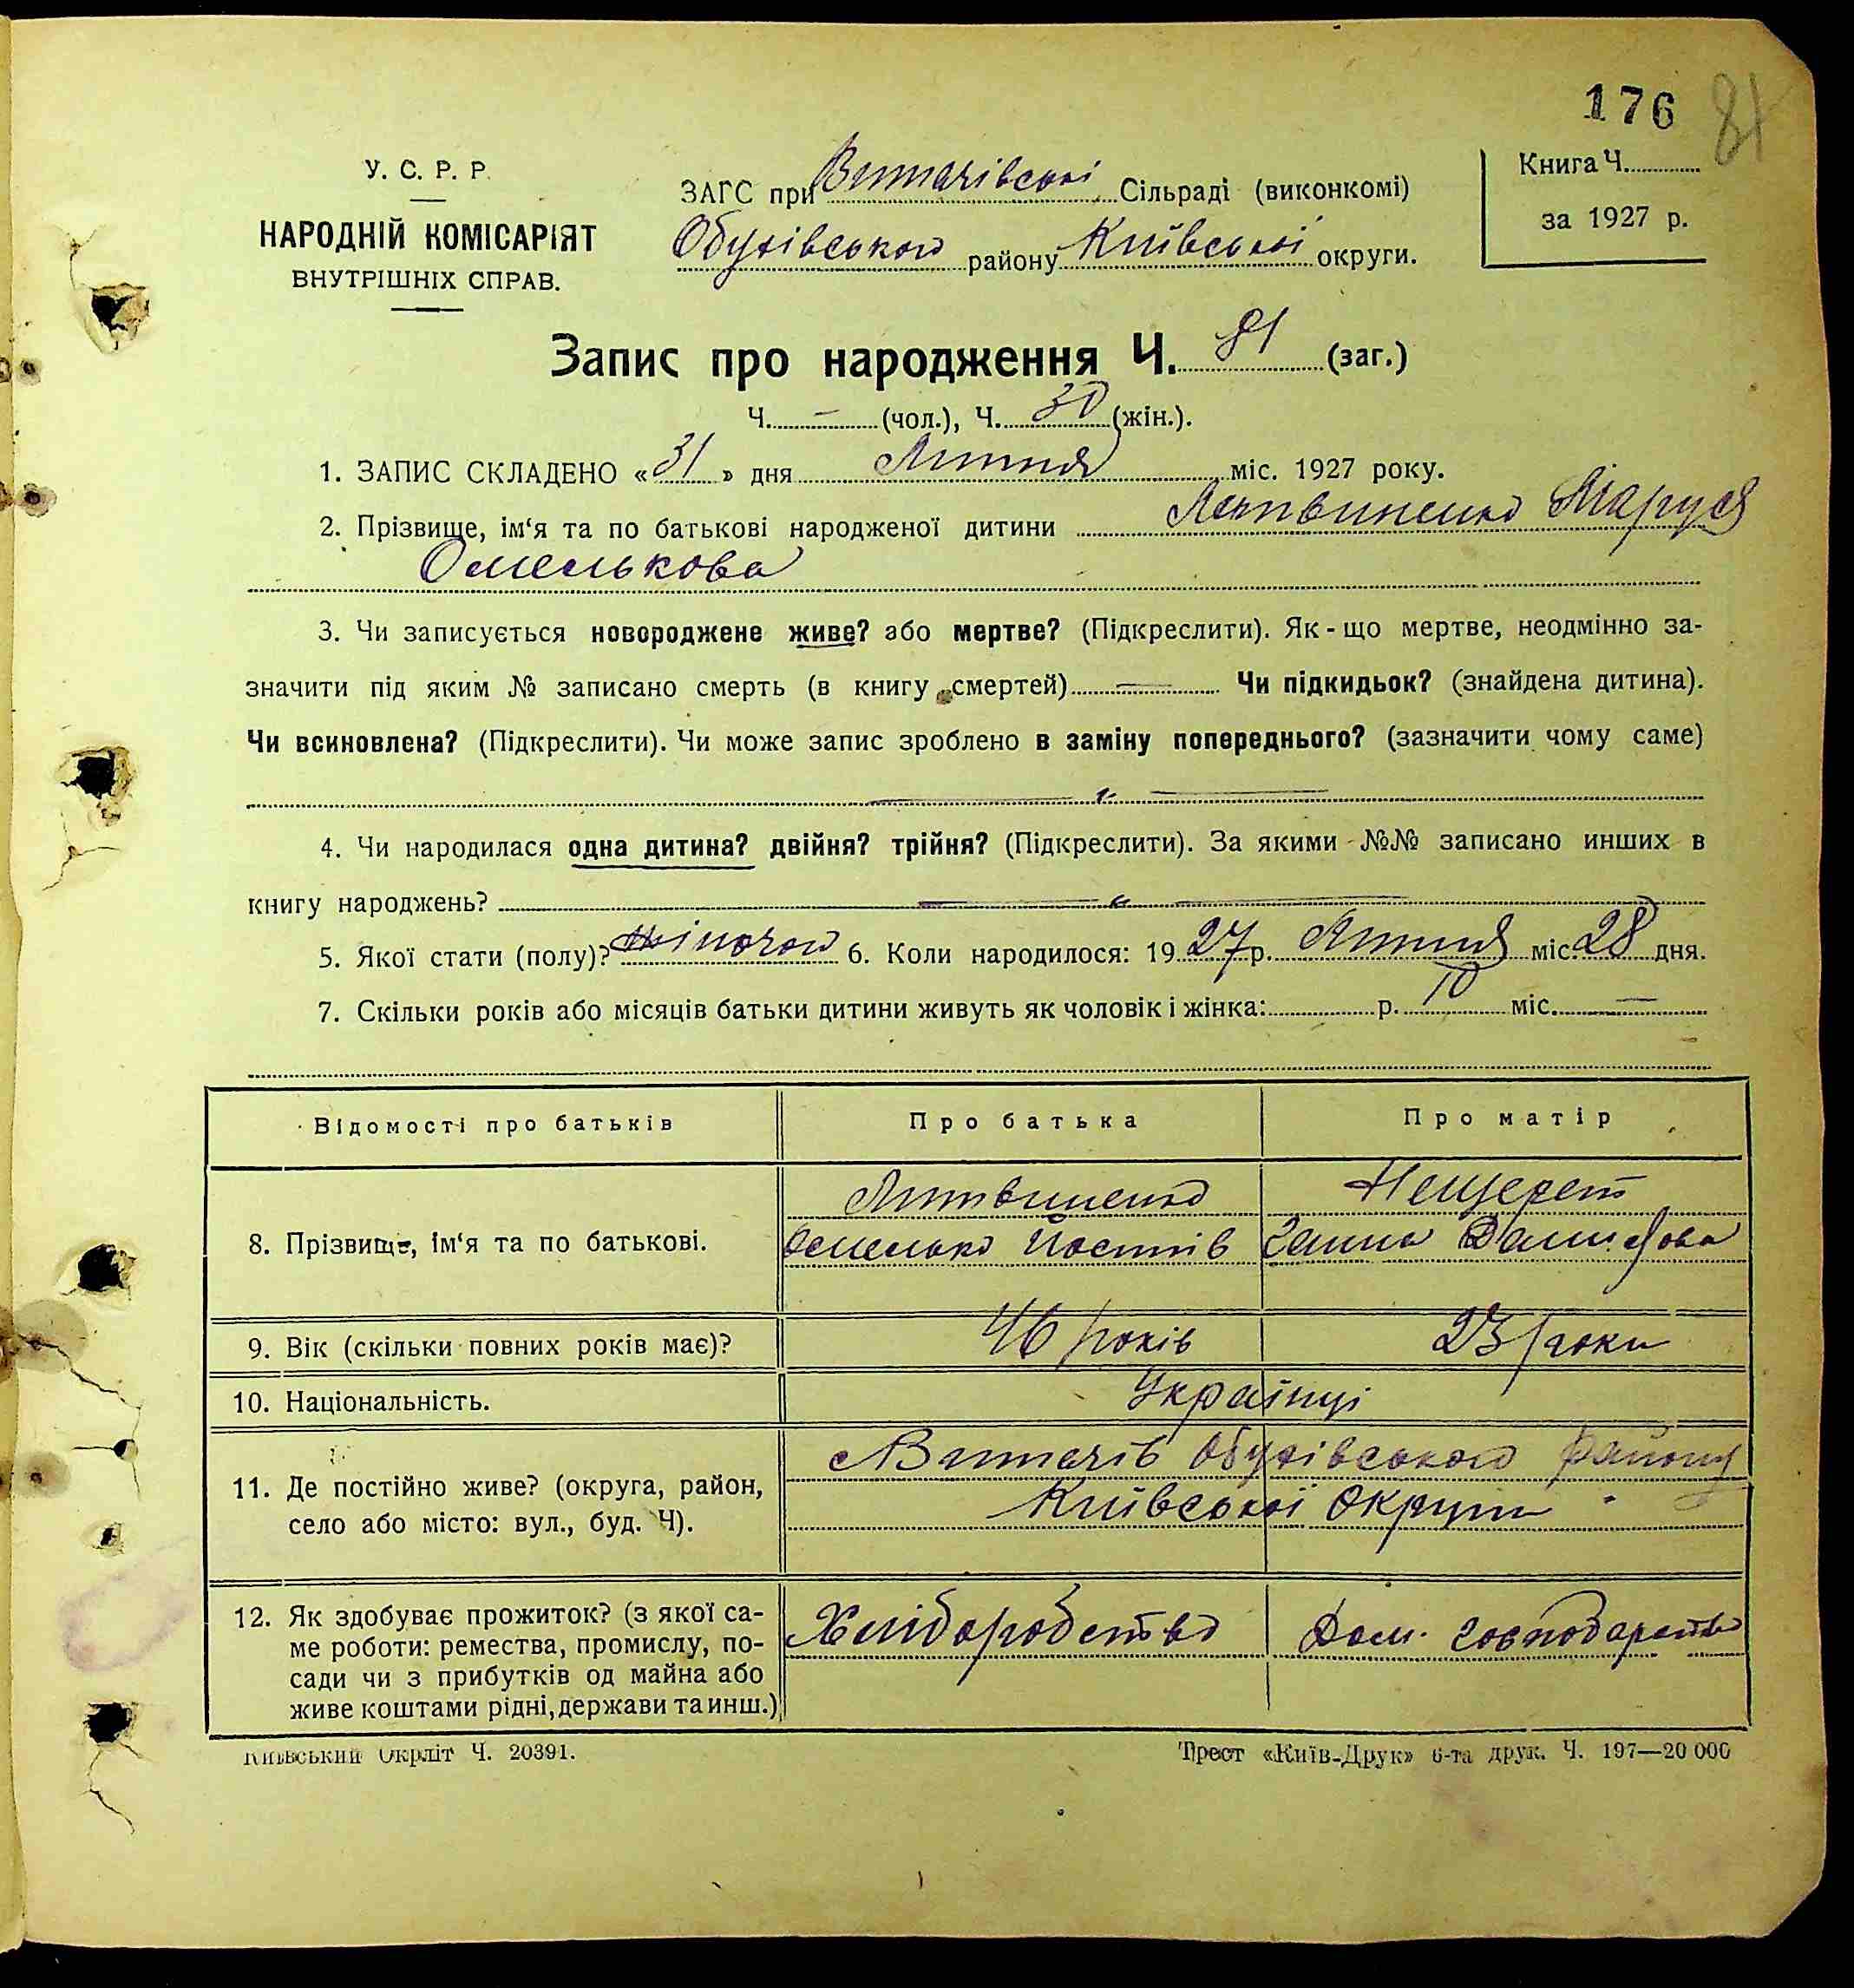 176 81
У. С. Р. Р.
НАРОДНІЙ КОМІСАРІЯТ
ВНУТРІШНІХ СПРАВ.
ЗАГС при Витачівські Сільраді (виконкомі)
Обухівського району Київської округи.
Книга Ч.
за 1927 р.
Запис про народження Ч. 81 (заг.)
Ч. — (чол.), Ч. 30 (жін.).
1. ЗАПИС СКЛАДЕНО «31» дня Липня міс. 1927 року.
2. Прізвище, ім‘я та по батькові народженої дитини Литвиненко Маруся
Омелькова
3. Чи записується новороджене живе? або мертве? (Підкреслити). Як-що мертве, неодмінно за-
значити під яким № записано смерть (в книгу смертей) — Чи підкидьок? (знайдена дитина).
Чи всиновлена? (Підкреслити). Чи може запис зроблено в заміну попереднього? (зазначити чому саме)
— „ —
4. Чи народилася одна дитина? двійня? трійня? (Підкреслити). За якими №№ записано инших в
книгу народжень? — „ —
5. Якої стати (полу)? жіночої 6. Коли народилося: 1927 р. Липня міс. 28 дня.
7. Скільки років або місяців батьки дитини живуть як чоловік і жінка: р. 10 міс. —
Відомості про батьків Про батька Про матір
8. Прізвище, ім‘я та по батькові.
Литвиненко Нещерет
Омелько Йостів Ганна Данилова
9. Вік (скільки повних років має)? 46 років 23 роки
10. Національність. Українці
11. Де постійно живе? (округа, район,
село або місто: вул., буд. Ч).
с Витачів Обухівського району
Київської Округи
12. Як здобуває прожиток? (з якої са-
ме роботи: ремества, промислу, по-
сади чи з прибутків од майна або
живе коштами рідні, держави та инш.)
Хліборобство Дом. господарство
Київський Окрліт Ч. 20391.
Трест «Київ-Друк» 6-та друк. Ч. 197—20 000